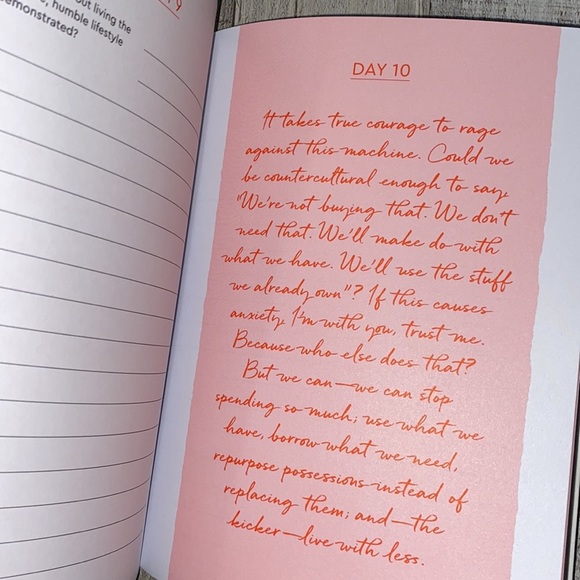 out living the
, humble lifestyle
demonstrated?
DAY 10
It takes true courage to rage
against this machine. Could we
be countercultural enough to say,
"We're not buying that. We don't
need that. We'll make do with
what we have. We'll use the stuff
we already own"? If this causes
anxiety, I'm with you, trust me.
Because who else does that?
But we can—we can stop
spending so much; use what we
have, borrow what we need,
repurpose possessions instead of
replacing them; and—the
kicker—live with less.